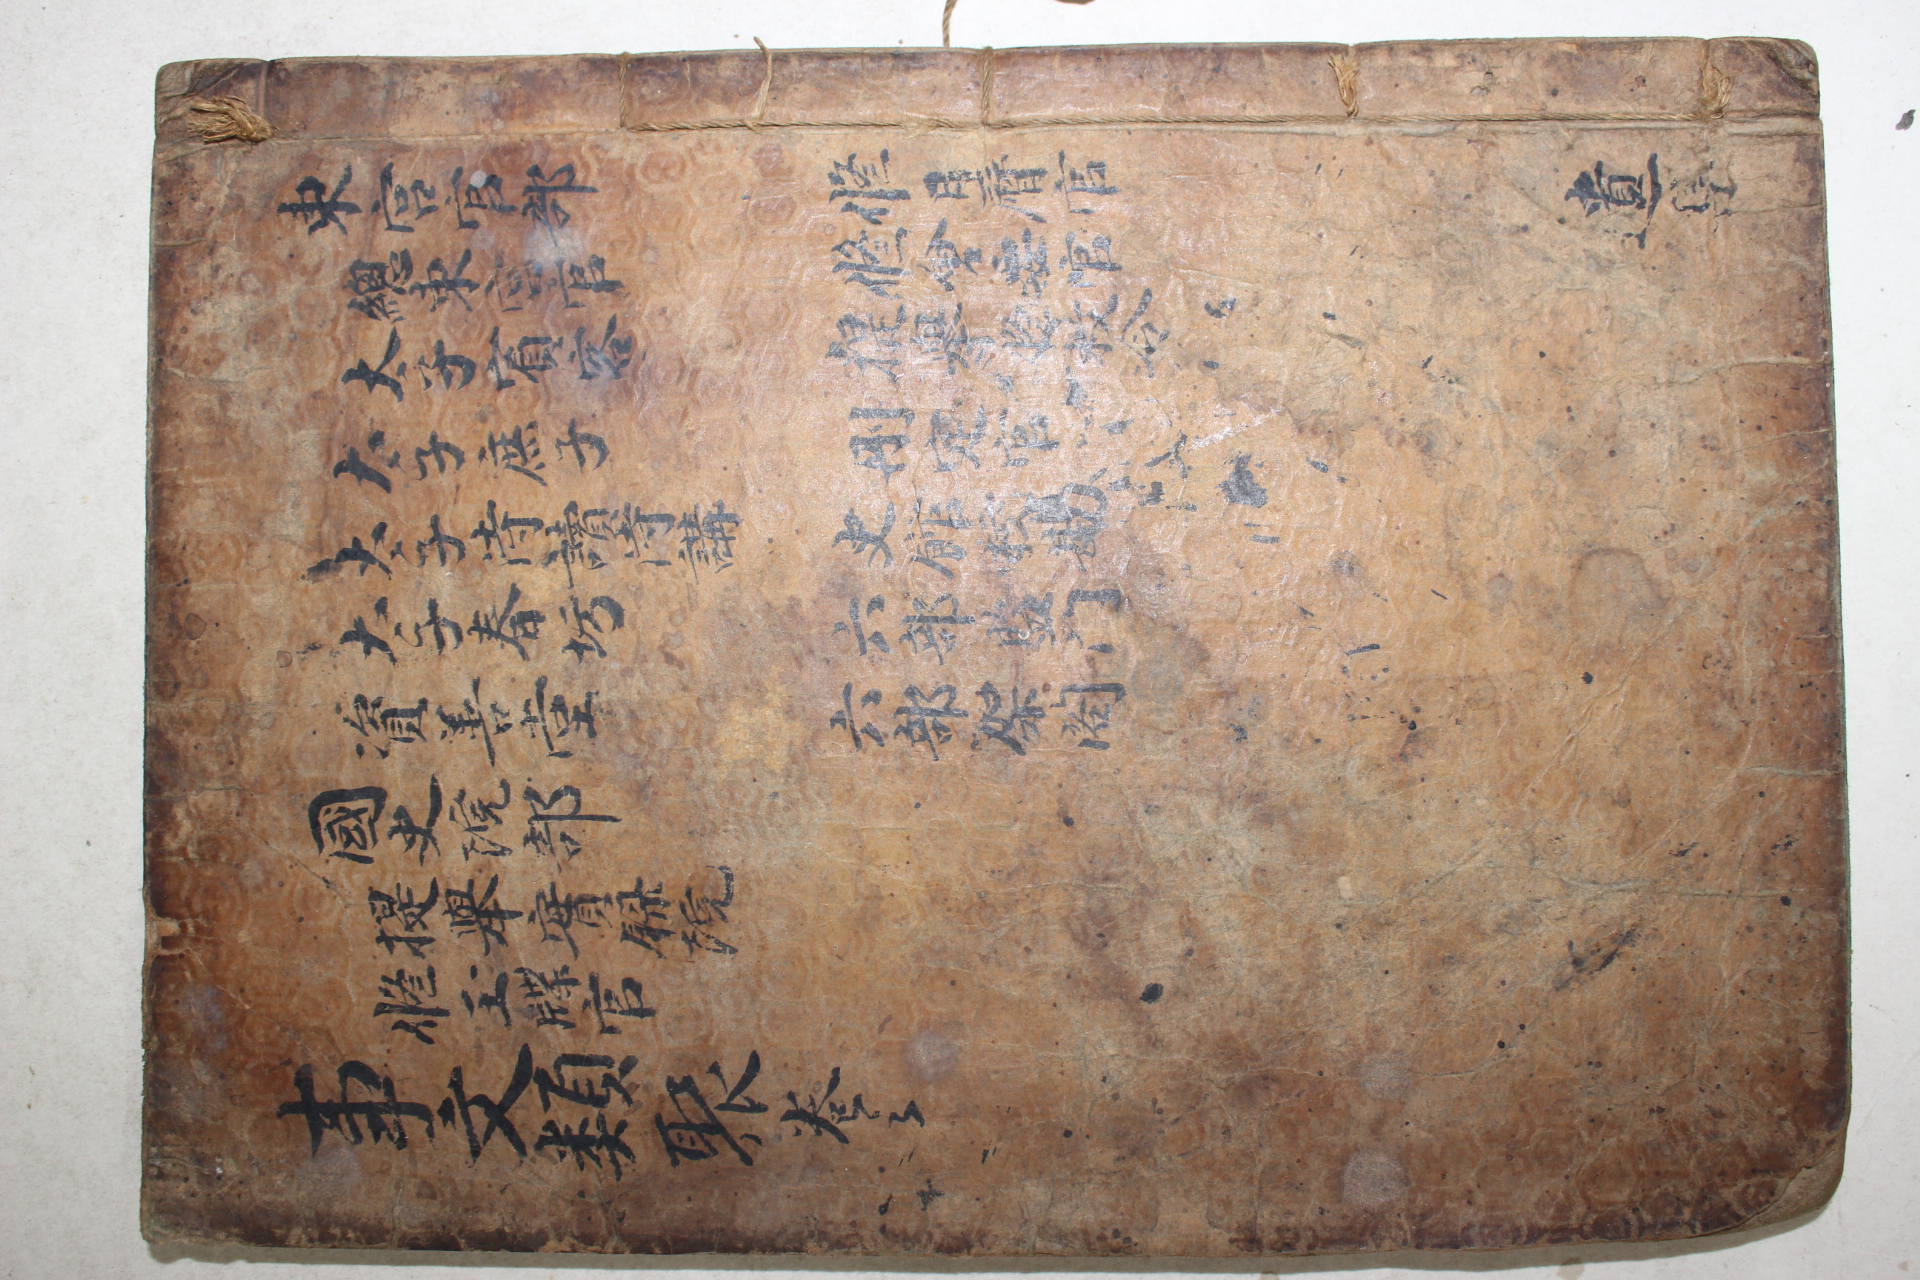 東宮官部
總東宮官
太子賓客
太子庶子
太子侍讀侍講
太子春坊
資善堂
國史院部
提舉實録院
修玉牒官
修日曆官
修會要官
提舉修敕令
刪定官
史館校勘
六部監門
六部架閣
事文類聚 卷之
遺